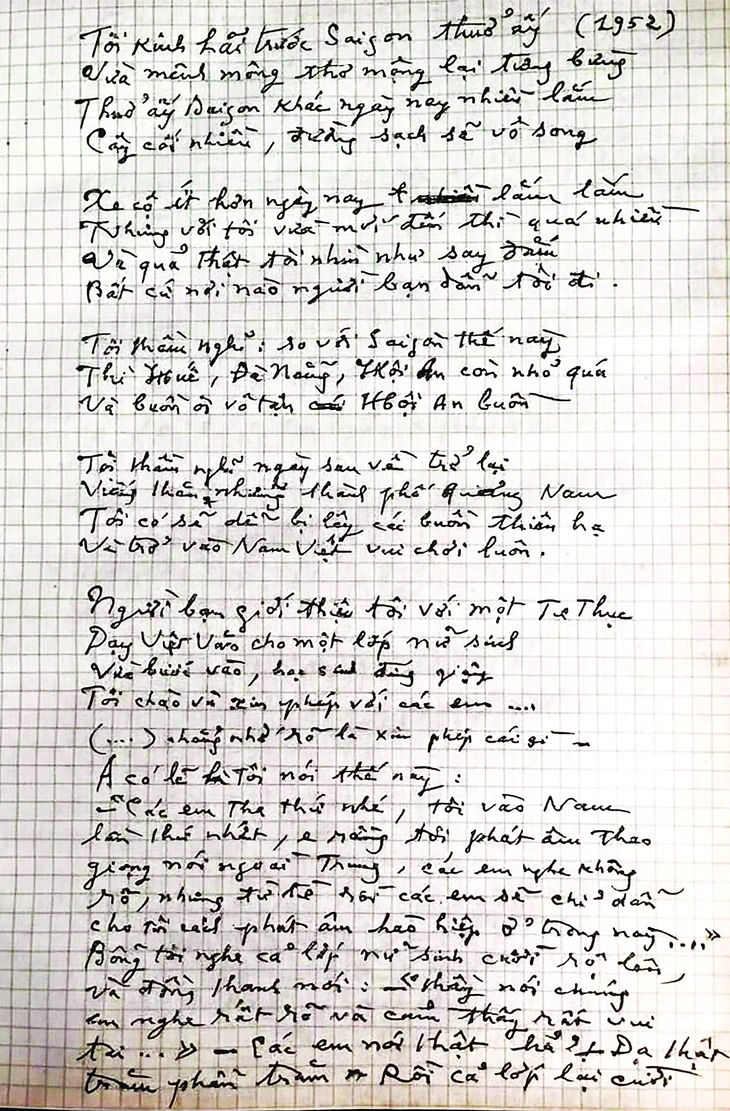 Tôi kinh hãi trước Saigon thuở ấy (1952)
Vừa mênh mông thơ mộng lại tưng bừng
Thuở ấy Saigon khác ngày nay nhiều lắm
Cây cối nhiều, đường sạch sẽ vô song
Xe cộ ít hơn ngày nay lắm lắm
Nhưng với tôi vừa mới đến thì quá nhiều
Và quả thật tôi nhìn như say đắm
Bất cứ nơi nào người bạn dẫn tôi đi.
Tôi thầm nghĩ: so với Saigon thế này
Thì Huế, Đà Nẵng, Hội An còn nhỏ quá
Và buồn ơi vô tận Hội An buồn
Tôi thầm nghĩ ngày sau về trở lại
Viếng thăm những thành phố Quảng Nam
Tôi có sẽ dễ bị lây cái buồn thiên hạ
Và trở vào Nam Việt vui chơi luôn.
Người bạn giới thiệu tôi với một Tư Thục
Dạy Việt Văn cho một lớp nữ sinh
Vừa bước vào, học sinh đứng giậy
Tôi chào và xin phép với các em ....
(....) không nhớ rõ là xin phép cái gì –
A có lẽ Tôi nói thế này:
– "Các em tha thứ nhé, tôi vào Nam
lần thứ nhất, e rằng tôi phát âm theo
giọng nói ngoài Trung, các em nghe không
rõ, nhưng từ từ rồi các em sẽ chỉ dẫn
cho tôi cách phát âm hào hiệp ở trong này ...."
Bỗng tôi nghe cả lớp nữ sinh cười rộ lên,
và đồng thanh nói: – "thầy nói chúng
em nghe rất rõ và cảm thấy rất vui
tai ..." – Các em nói thật hả? – Dạ thật
trăm phần trăm – Rồi cả lớp lại cười